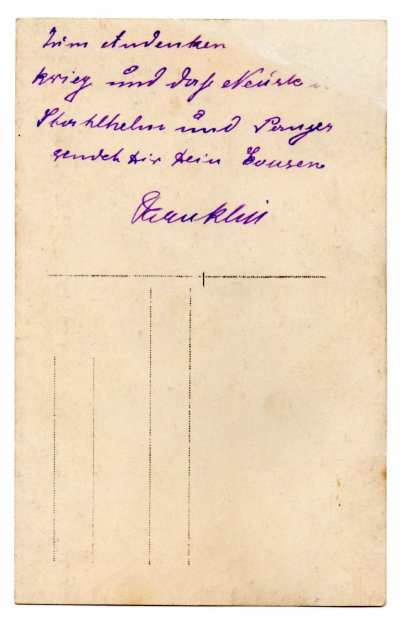 Zum Andenken
Krieg und daß Neuste
Stahlhelm und Panzer
sendet dir dein Cousen
Franklin